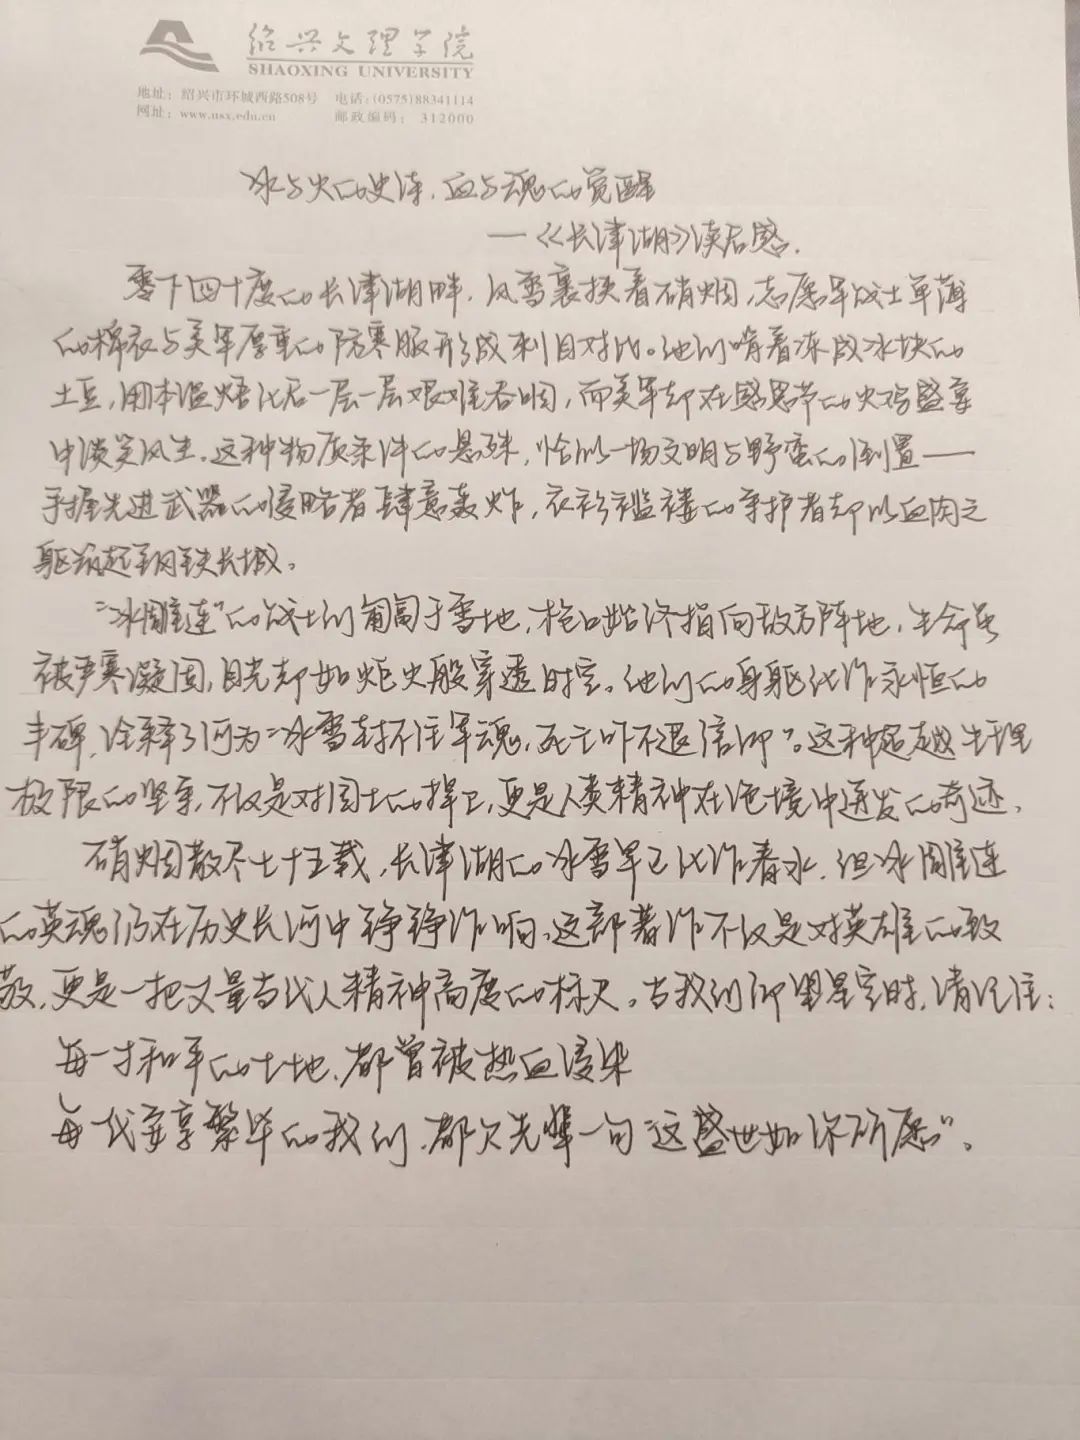 绍兴文理学院
SHAOXING UNIVERSITY
地址：绍兴市环城西路508号 电话：(0575)88341114
网址：www.usx.edu.cn 邮政编码：312000
冰与火的史诗，血与魂的觉醒
——《长津湖》读后感.
零下四十度的长津湖畔，风雪裹挟着硝烟，志愿军战士单薄
的棉衣与美军厚重的防寒服形成刺目对比。他们啃着冻成冰块的
土豆，用体温焐化后一层一层艰难吞咽，而美军却在感恩节的火鸡盛宴
中谈笑风生。这种物质条件的悬殊，恰似一场文明与野蛮的倒置——
手握先进武器的侵略者肆意轰炸，衣衫褴褛的守护者却以血肉之
躯筑起钢铁长城。
“冰雕连”的战士们匍匐于雪地，枪口始终指向敌方阵地，生命虽
被严寒凝固，目光却如炬火般穿透时空。他们的身躯化作永恒的
丰碑，诠释了何为“冰雪封不住军魂，死亡吓不退信仰”。这种超越生理
极限的坚守，不仅是对国土的捍卫，更是人类精神在绝境中迸发的奇迹。
硝烟散尽七十五载，长津湖的冰雪早已化作春水，但冰雕连
的英魂仍在历史长河中铮铮作响。这部著作不仅是对英雄的致
敬，更是一把丈量当代人精神高度的标尺。当我们仰望星空时，请记住：
每一寸和平的土地，都曾被热血浸染
每一代安享繁华的我们，都欠先辈一句“这盛世如你所愿”。